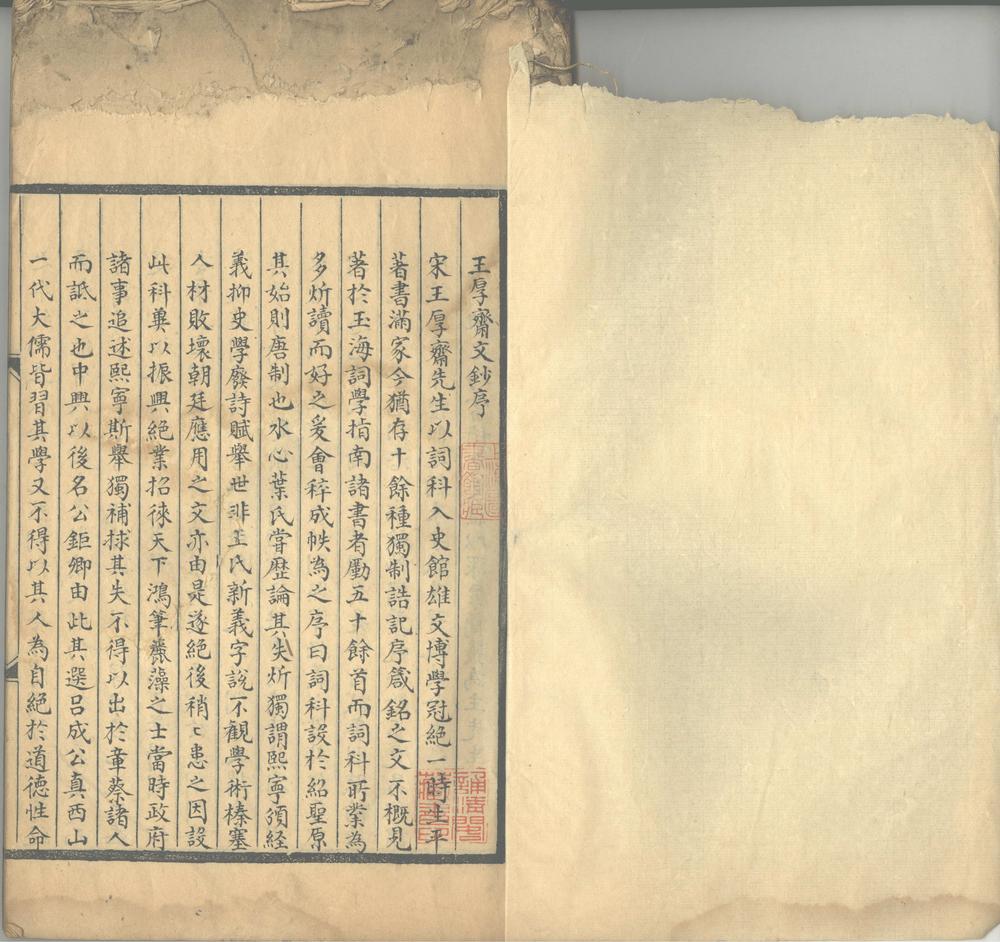 王厚齋文鈔序
宋王厚齋先生以詞科入史館雄文博學冠絕一時生平
著書滿家今猶存十餘種獨制誥記序箴銘之文不概見
著於玉海詞學指南諸書者勵五十餘首而詞科所業為
多炘讀而好之爰會稡成帙為之序曰詞科設於紹聖原
其始則唐制也水心葉氏嘗歷論其失炘獨謂熙寧頒經
義抑史學廢詩賦舉世非王氏新義字說不觀學術榛塞
人材敗壞朝廷應用之文亦由是遂絕後稍〻患之因設
此科兾以振興絕業招徠天下鴻筆麗藻之士當時政府
諸事追述熙寧斯舉獨補捄其失不得以出於章蔡諸人
而詆之也中興以後名公鉅卿由此其選呂成公真西山
一代大儒皆習其學又不得以其人為自絕於道德性命
誦清閣